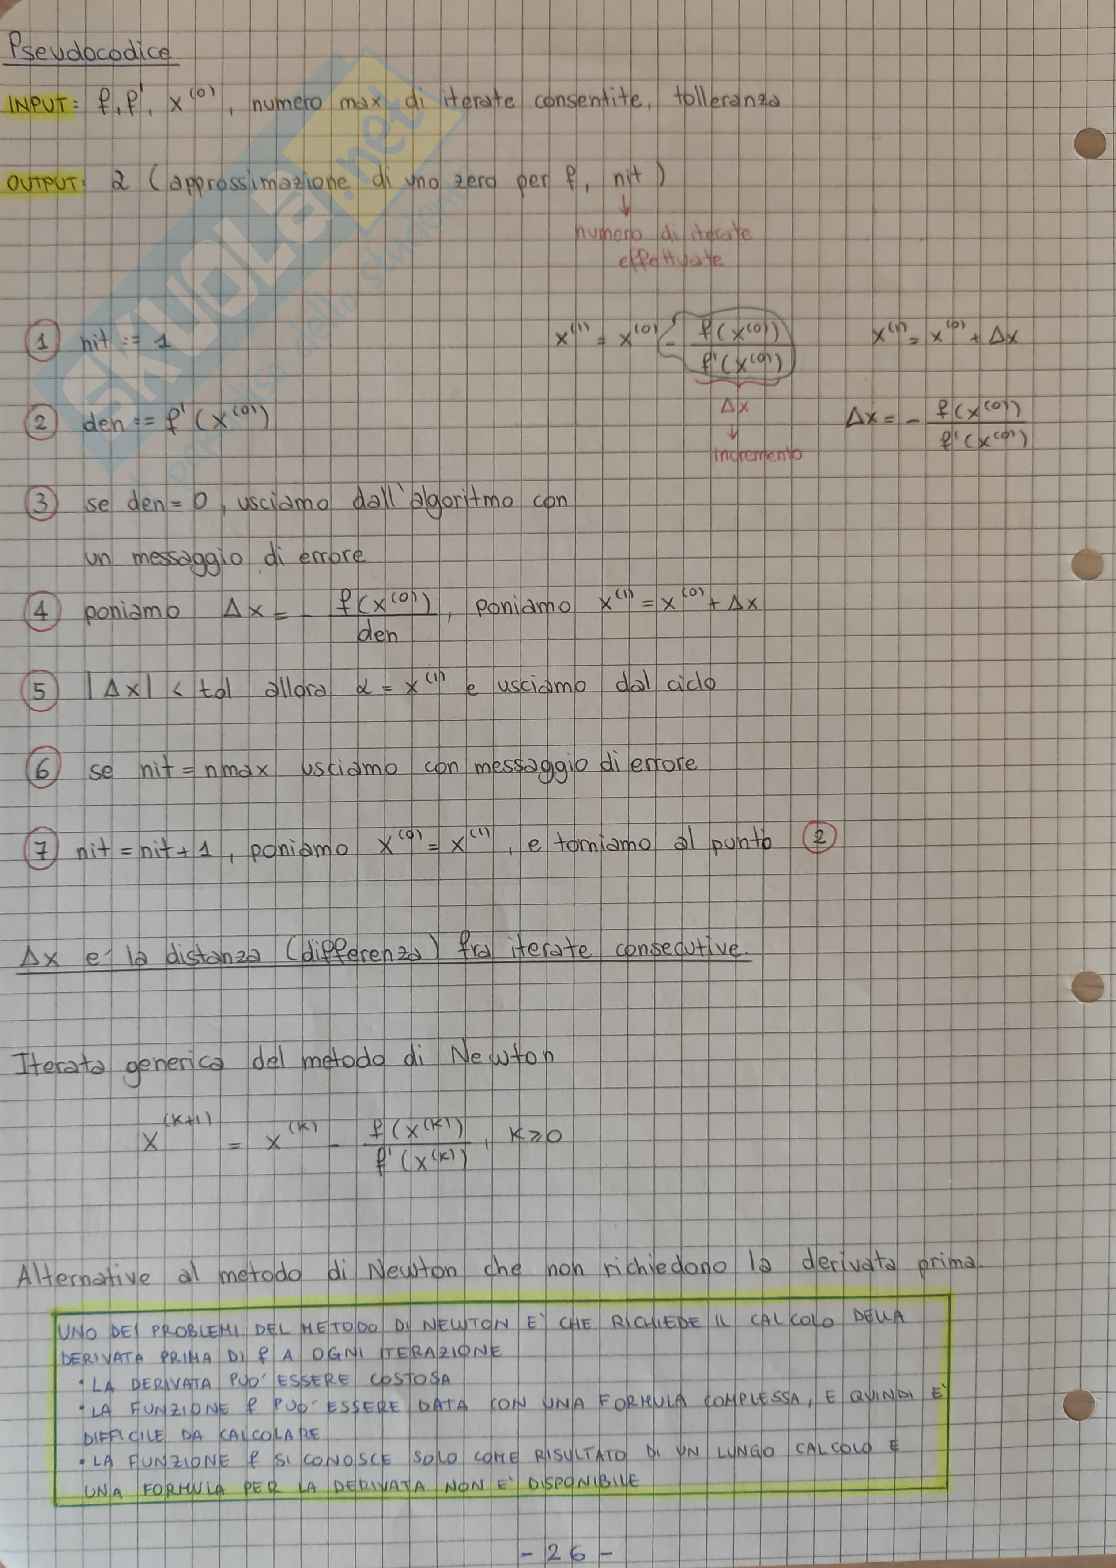 Pseudocodice
INPUT: f, f', x^(0), numero max di iterate consentite, tolleranza
OUTPUT: α (approssimazione di uno zero per f, nit)
↓
numero di iterate
effettuate
① nit := 1
x^(1) = x^(0) - f(x^(0)) / f'(x^(0))
x^(1) = x^(0) + Δx
Δx
↓
incremento
② den := f'(x^(0))
Δx = - f(x^(0)) / f'(x^(0))
③ se den = 0, usciamo dall'algoritmo con
un messaggio di errore
④ poniamo Δx = - f(x^(0)) / den, poniamo x^(1) = x^(0) + Δx
⑤ |Δx| < tol allora α = x^(1) e usciamo dal ciclo
⑥ se nit = nmax usciamo con messaggio di errore
⑦ nit = nit + 1, poniamo x^(0) = x^(1), e torniamo al punto ②
Δx e' la distanza (differenza) fra iterate consecutive.
Iterata generica del metodo di Newton
x^(k+1) = x^(k) - f(x^(k)) / f'(x^(k)), k ≥ 0
Alternative al metodo di Newton che non richiedono la derivata prima.
UNO DEI PROBLEMI DEL METODO DI NEWTON E' CHE RICHIEDE IL CALCOLO DELLA
DERIVATA PRIMA DI f A OGNI ITERAZIONE
• LA DERIVATA PUO' ESSERE COSTOSA
• LA FUNZIONE f PUO' ESSERE DATA CON UNA FORMULA COMPLESSA, E QUINDI E'
DIFFICILE DA CALCOLARE
• LA FUNZIONE f SI CONOSCE SOLO COME RISULTATO DI UN LUNGO CALCOLO E
UNA FORMULA PER LA DERIVATA NON E' DISPONIBILE
- 26 -
SKUOLA.net